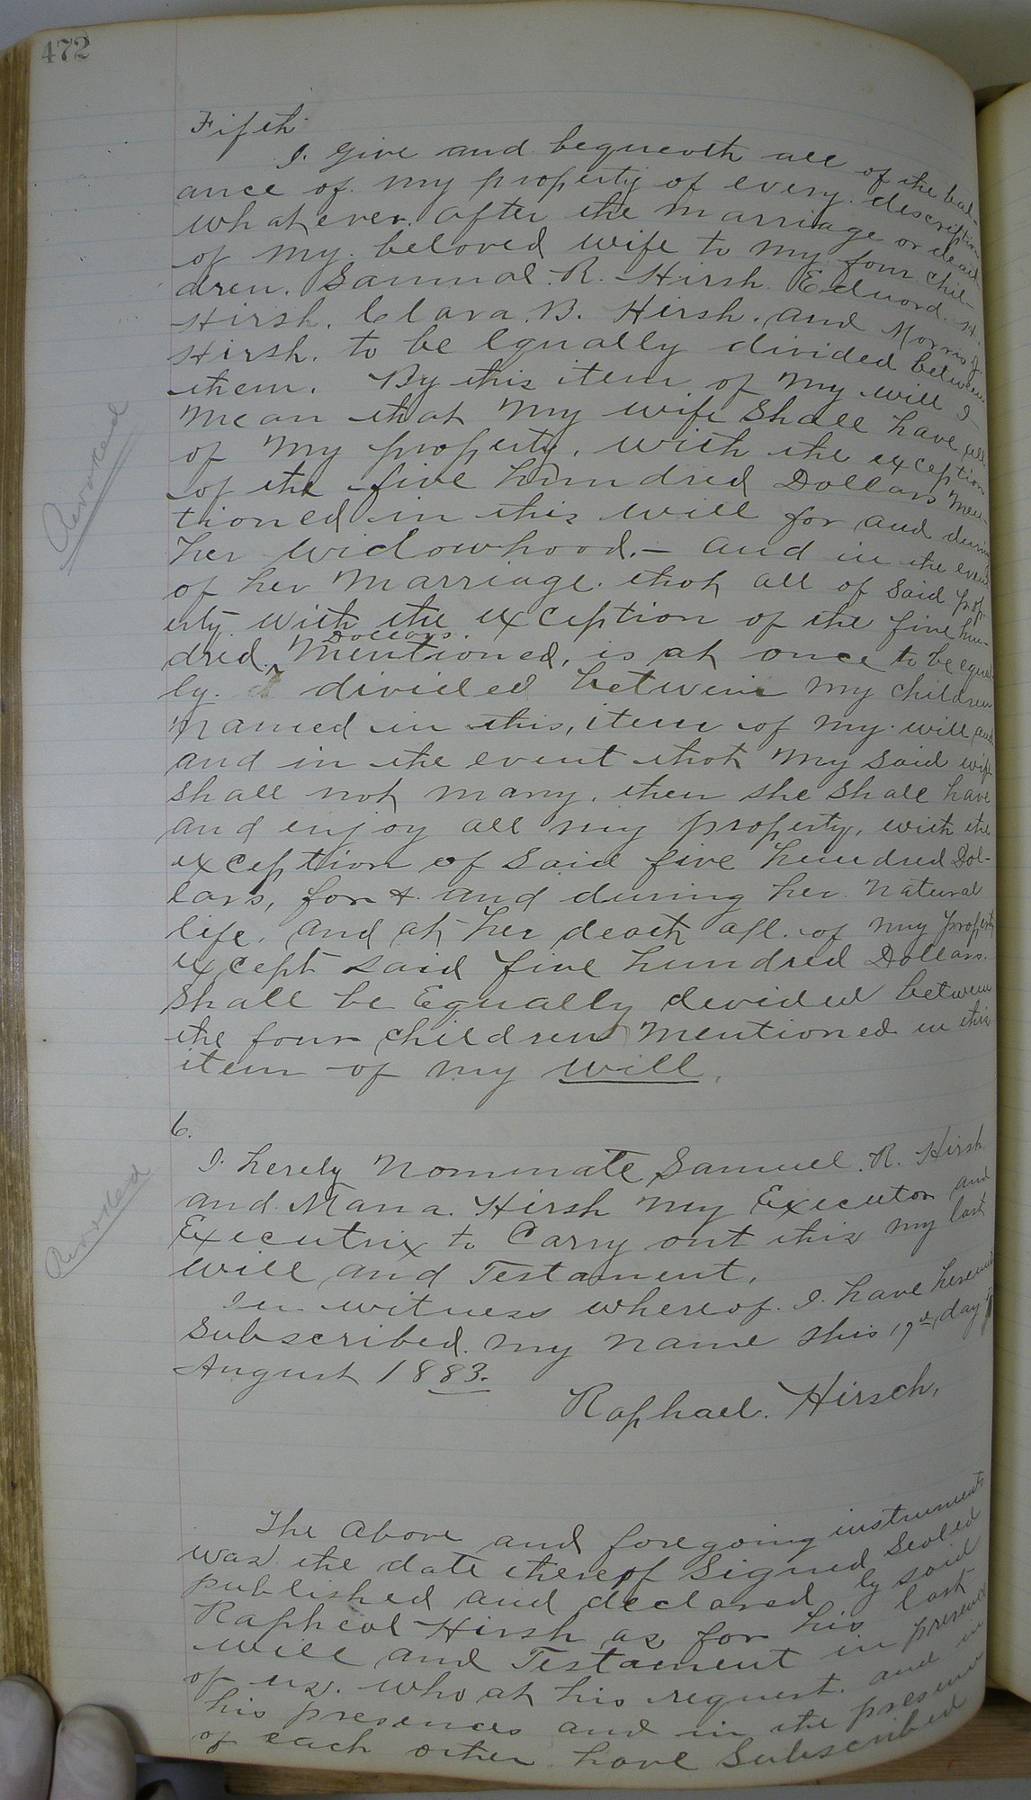 472
Fifth
I. Give and bequeath all of the bal-
ance of my property of every description
whatever. after the marriage or death
of my beloved wife to my four chil-
dren. Samual. R. Hirsh Edward. H.
Hirsh. Clara. B. Hirsh. and Morris
Hirsh. to be Equally divided between
them. By this item of my will I
mean that my wife shall have all
of my property, with the exception
of the five hundred Dollars men-
tioned in this will for and during
her widowhood.- and in the event
of her marriage. that all of said prop
erty. with the exception of the five hun-
Dollars.
dred. mentioned, is at once to be equal
ly. divided between my children
named in this, item of my will and
and in the event that my said wife
shall not marry. then she shall have
and enjoy all my property, with the
exception of said five hundred Dol-
lars, for & and during her natural
life, and at her death all. of my property
except said five hundred Dollars.
shall be Equally devided between
the four children mentioned in this
item of my will.
6.
I hereby nominate Samuel. R. Hirsh
and Mana. Hirsh my Executor and
Executrix to Carry out this my last
will and Testament.
In witness whereof. I. have hereunto
subscribed. my name this 17th day
August 1883.
Raphael. Hirsch.
The above and foregoing instruments
was the date thereof Signed Sealed
published and declared by said
Rapheal Hirsh as for his last
will and Testament in presence
of us. who at his request. and in
his presences and in the presence
of each other have Subscribed
Revoked
Revoked